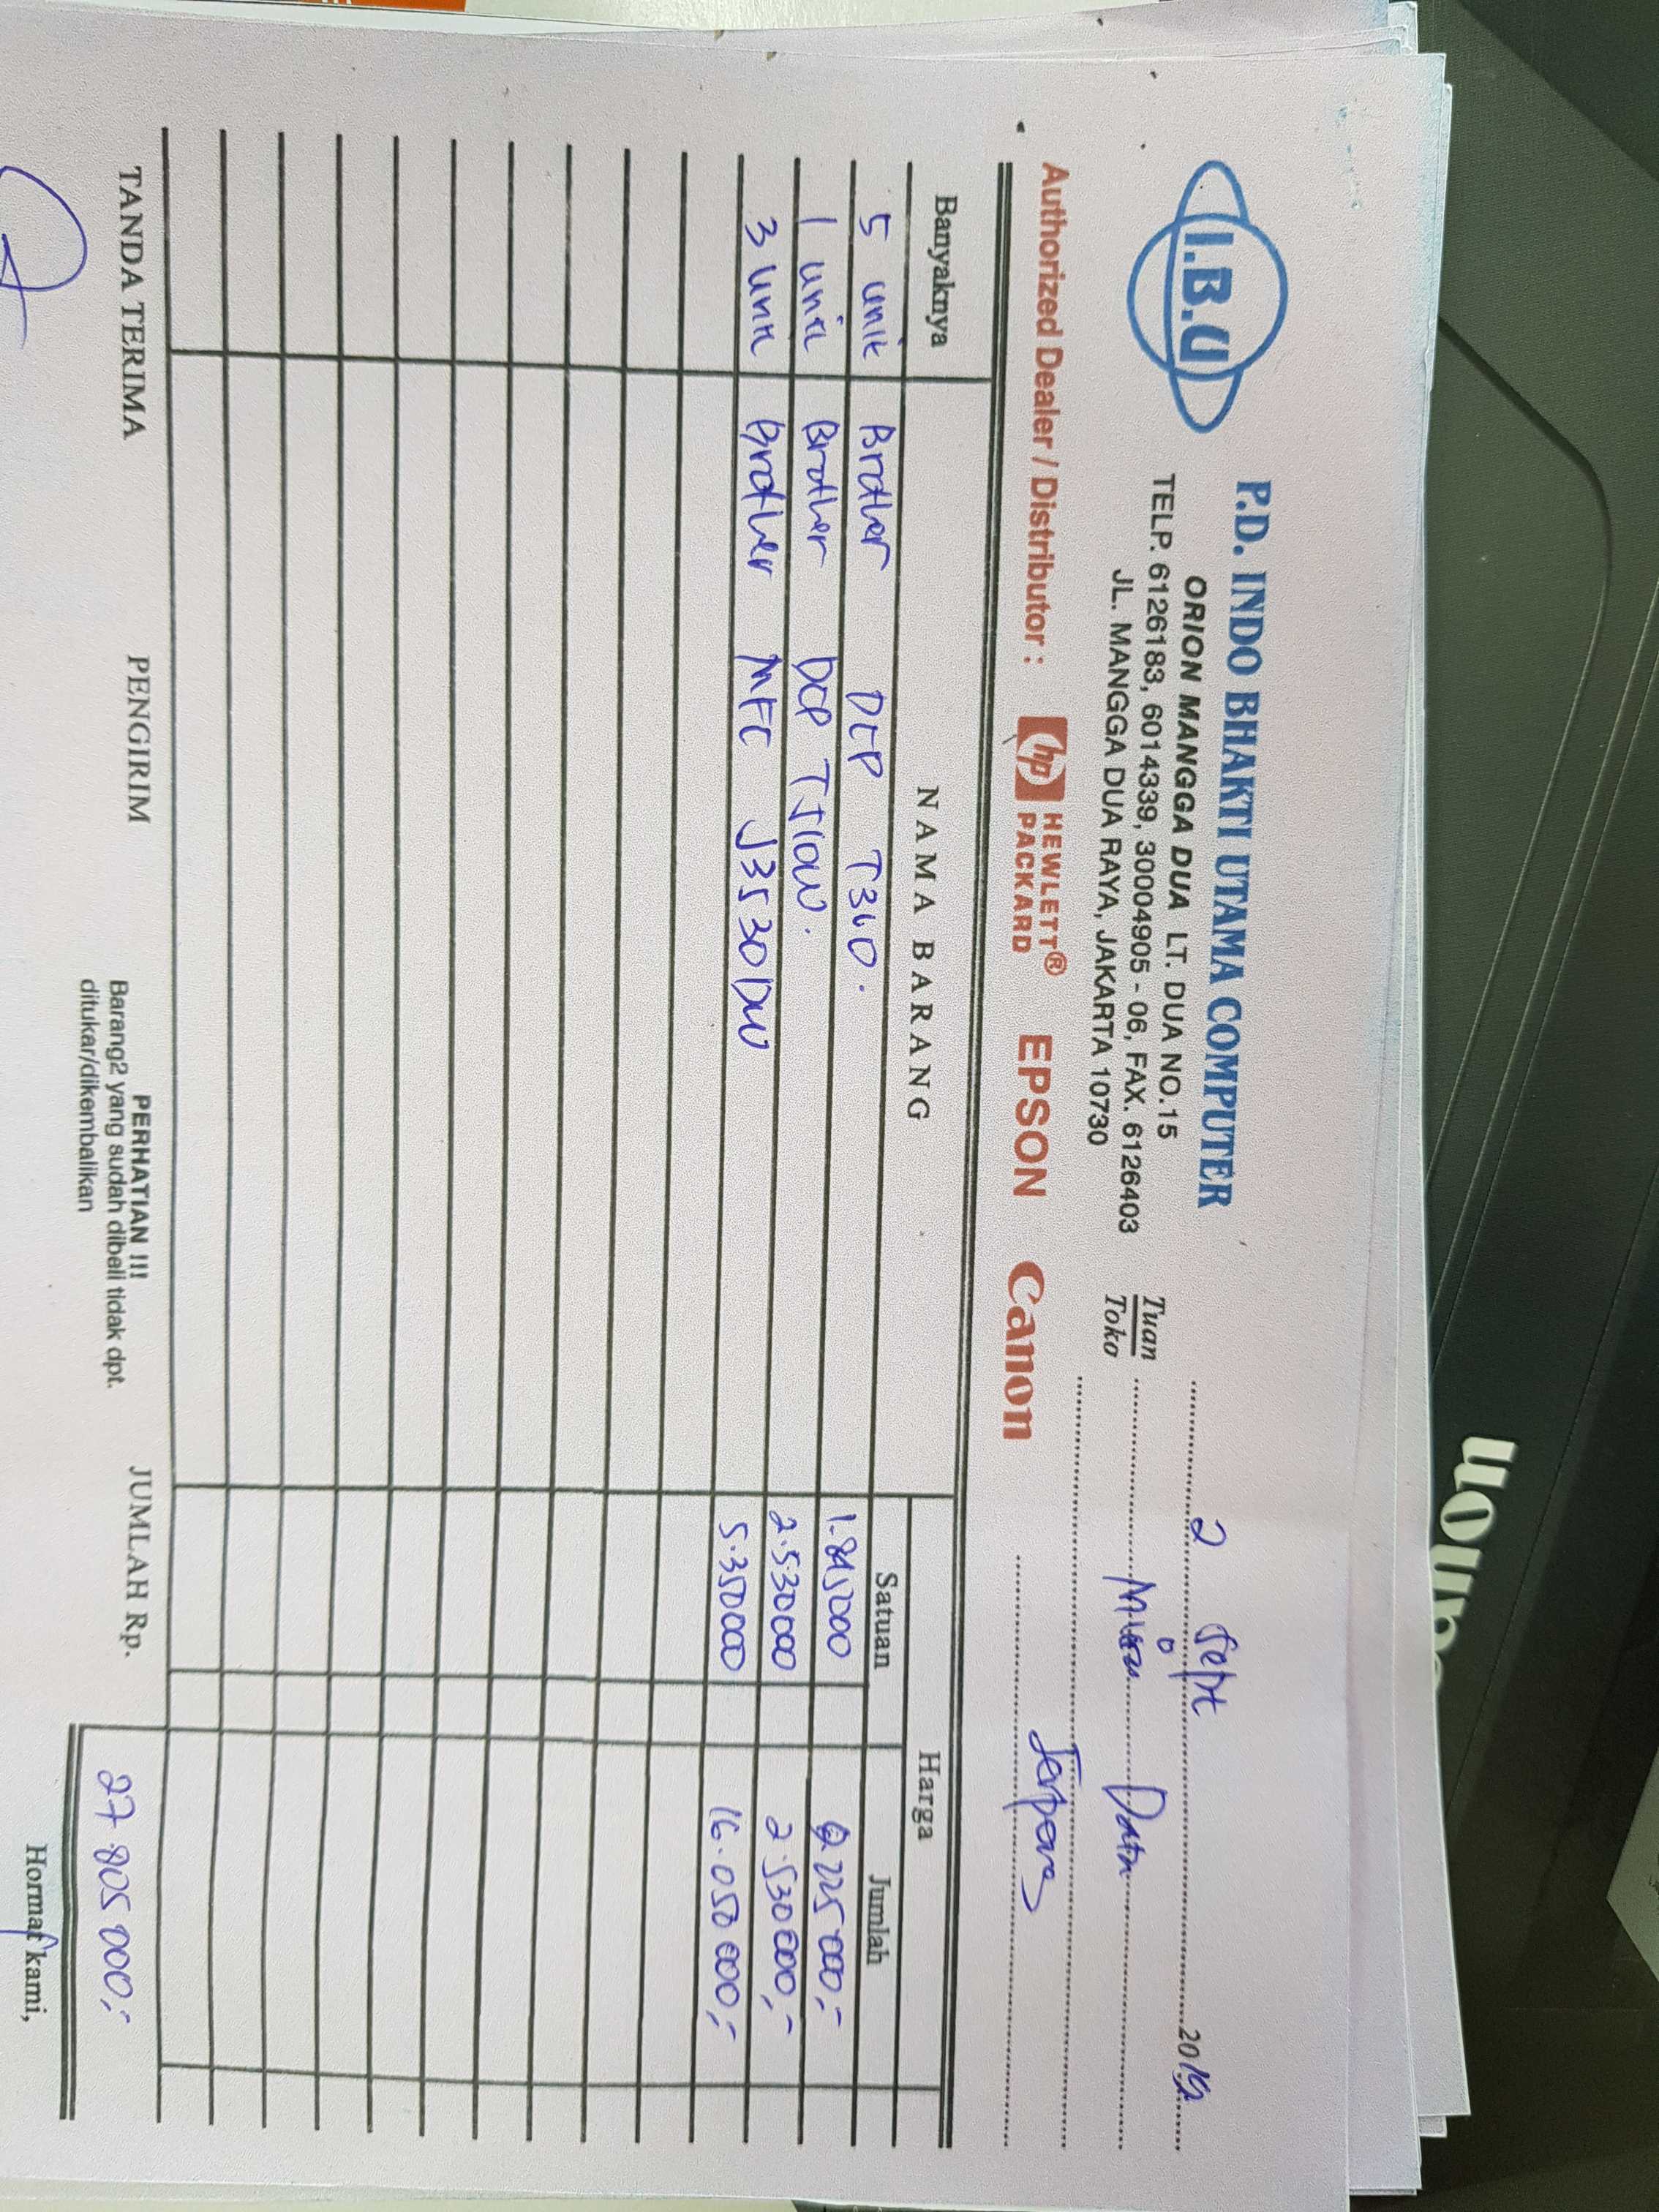 I.B.U
P.D. INDO BHAKTI UTAMA COMPUTER
ORION MANGGA DUA LT. DUA NO.15
TELP. 6126183, 6014339, 30004905 - 06, FAX. 6126403
JL. MANGGA DUA RAYA, JAKARTA 10730
2 Sept 2019
Tuan
Toko
Data
Authorized Dealer / Distributor : hp HEWLETT® PACKARD EPSON Canon
Banyaknya NAMA BARANG Harga
Satuan Jumlah
5 unit Brother DCP T310. 1.845000 9.225000,-
1 unit Brother DCP T510W. 2.530000 2.530000,-
3 unit Brother MFC J3530DW 5.350000 16.050000,-
TANDA TERIMA PENGIRIM PERHATIAN !!! JUMLAH Rp. 27.805000,-
Barang2 yang sudah dibeli tidak dpt.
ditukar/dikembalikan
Hormat kami,